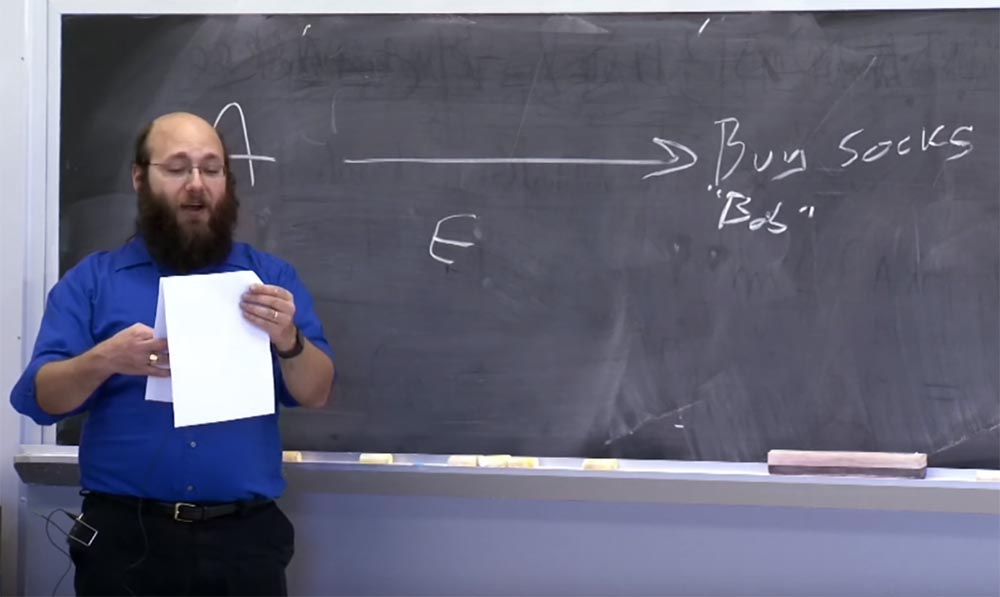 A Buy socks
"Bob"
E